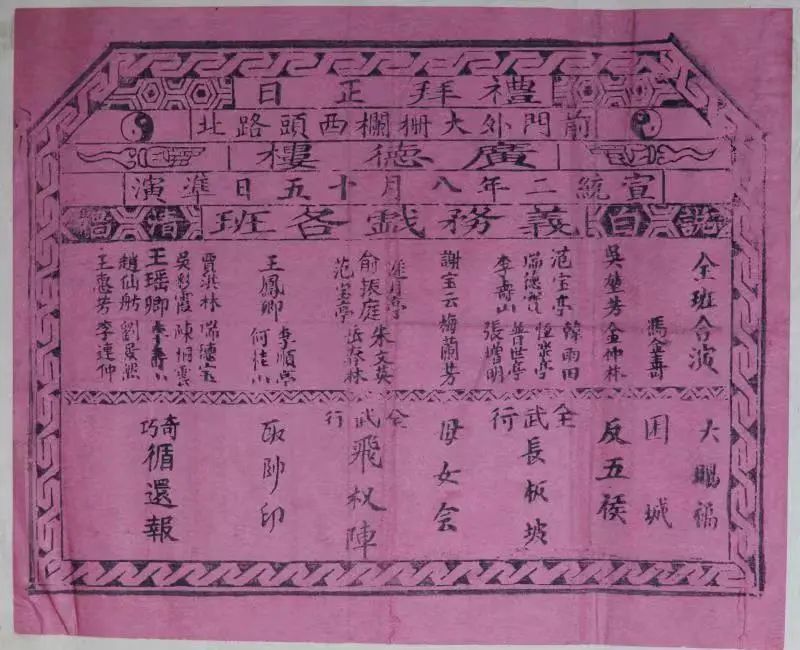 禮拜正日
前門外大柵欄西頭路北
廣德樓
宣統二年八月十五日準演
説白 義務戲各班
全班合演
大賜福
馮金壽
困城
吳葉芳 金仲林
反五侯
范宝亭 韓雨田
瑞德寶 恒荣亭
李壽山 普世亭
張增明
全武行
長板坡
謝宝云 梅蘭芳
母女会
遲月亭 朱文英
俞振庭
范宝亭 岳春林
全武行
飛杈陣
李順亭
王鳳卿
何桂山
取帥印
賈洪林 瑞德宝
吳彩霞 陳桐雲
王瑤卿 李壽山
趙仙舫 劉景然
王蕙芳 李連仲
奇巧
循還報